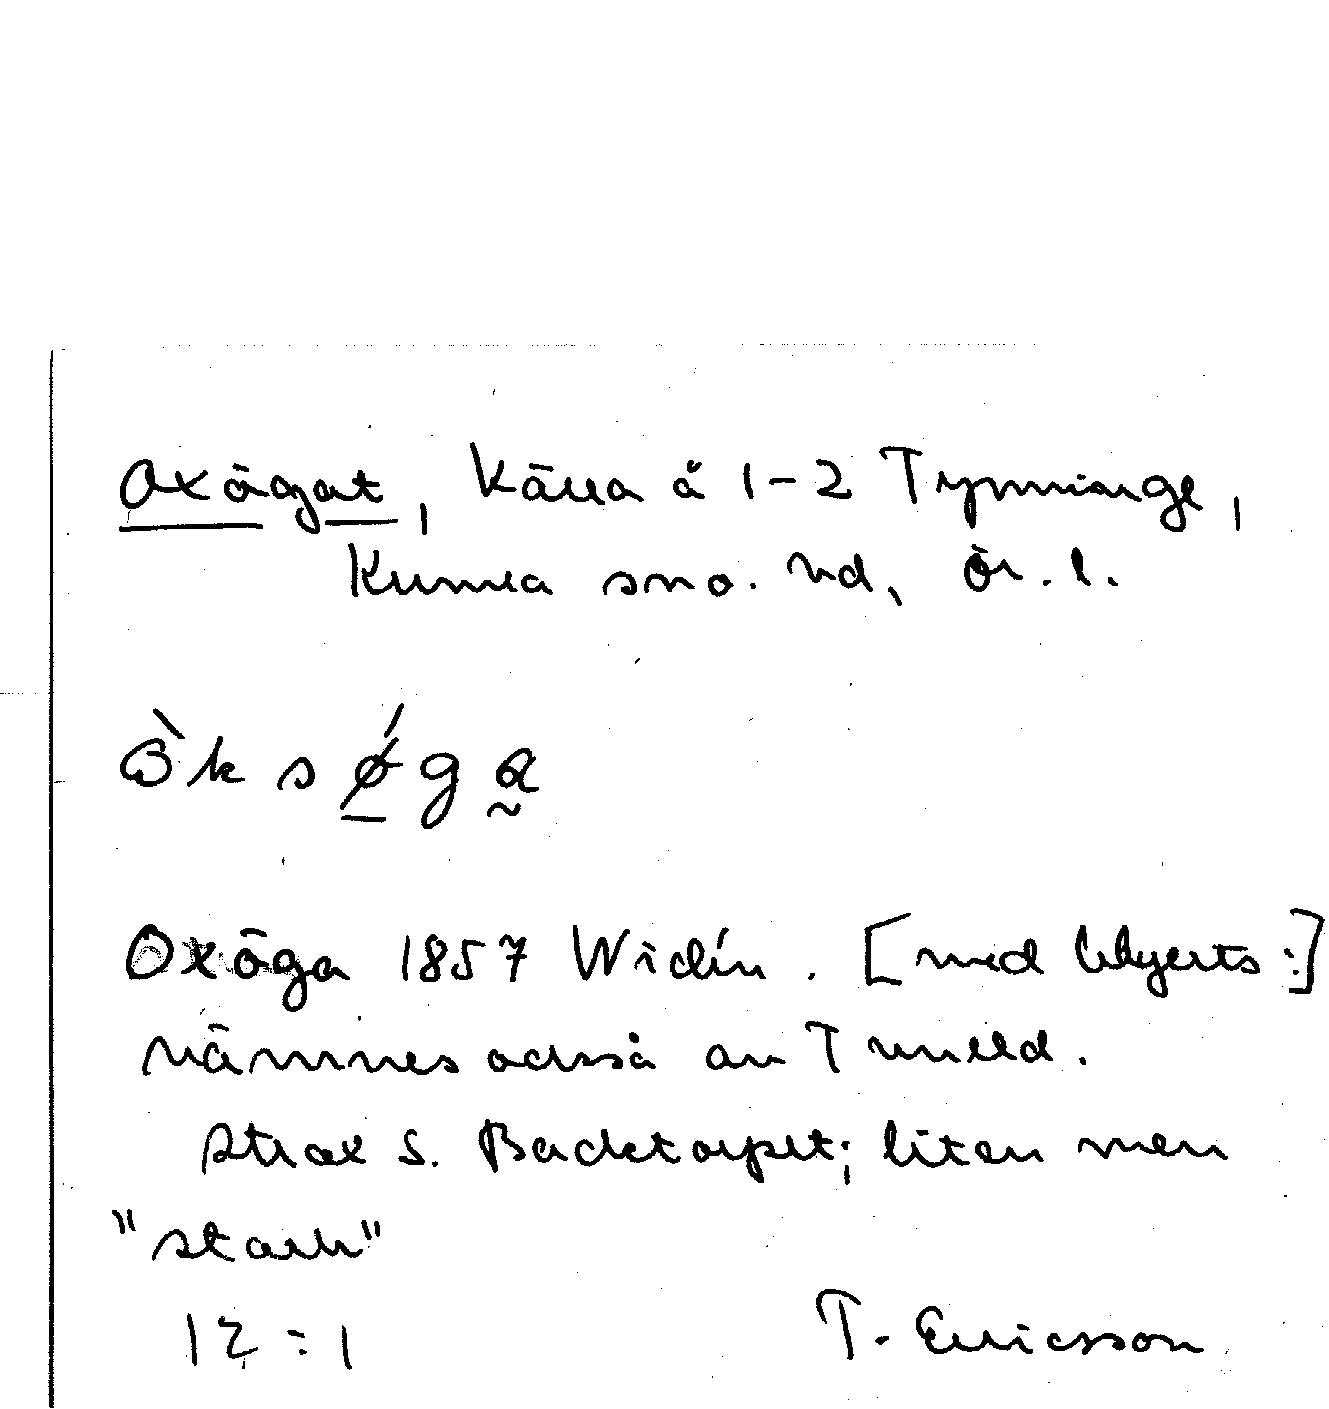 Oxögat, Källa å 1-2 Tynninge,
Kumla sno. nd, Ör. l.
Òksǿga
Oxöga 1857 Widén. [med blyerts:]
nämnes också av Tuneld.
strax S. Backtorpet; liten men
"stark"
12:1 T. Ericsson